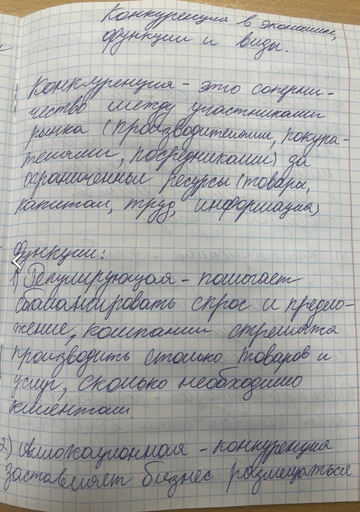 Конкуренция в экономике,
функции и виды.
Конкуренция - это соперни-
чество между участниками
рынка (производителями, покупа-
телями, посредниками) за
ограниченные ресурсы (товары,
капитал, труд, информация)
Функции:
1) Регулирующая - помогает
балансировать спрос и предло-
жение, компании стремятся
производить столько товаров и
услуг, сколько необходимо
клиентам.
2) Аллокационная - конкуренция
заставляет бизнес размещаться